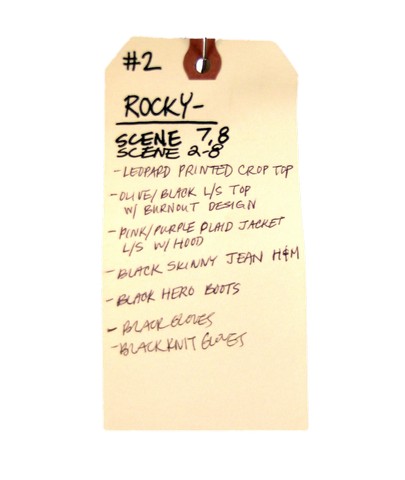 #2
ROCKY-
SCENE 7,8
SCENE 2-8
-LEOPARD PRINTED CROP TOP
-OLIVE/BLACK L/S TOP
W/ BURNOUT DESIGN
-PINK/PURPLE PLAID JACKET
L/S W/HOOD
-BLACK SKINNY JEAN H&M
-BLACK HERO BOOTS
-BLACK GLOVES
-BLACK KNIT GLOVES